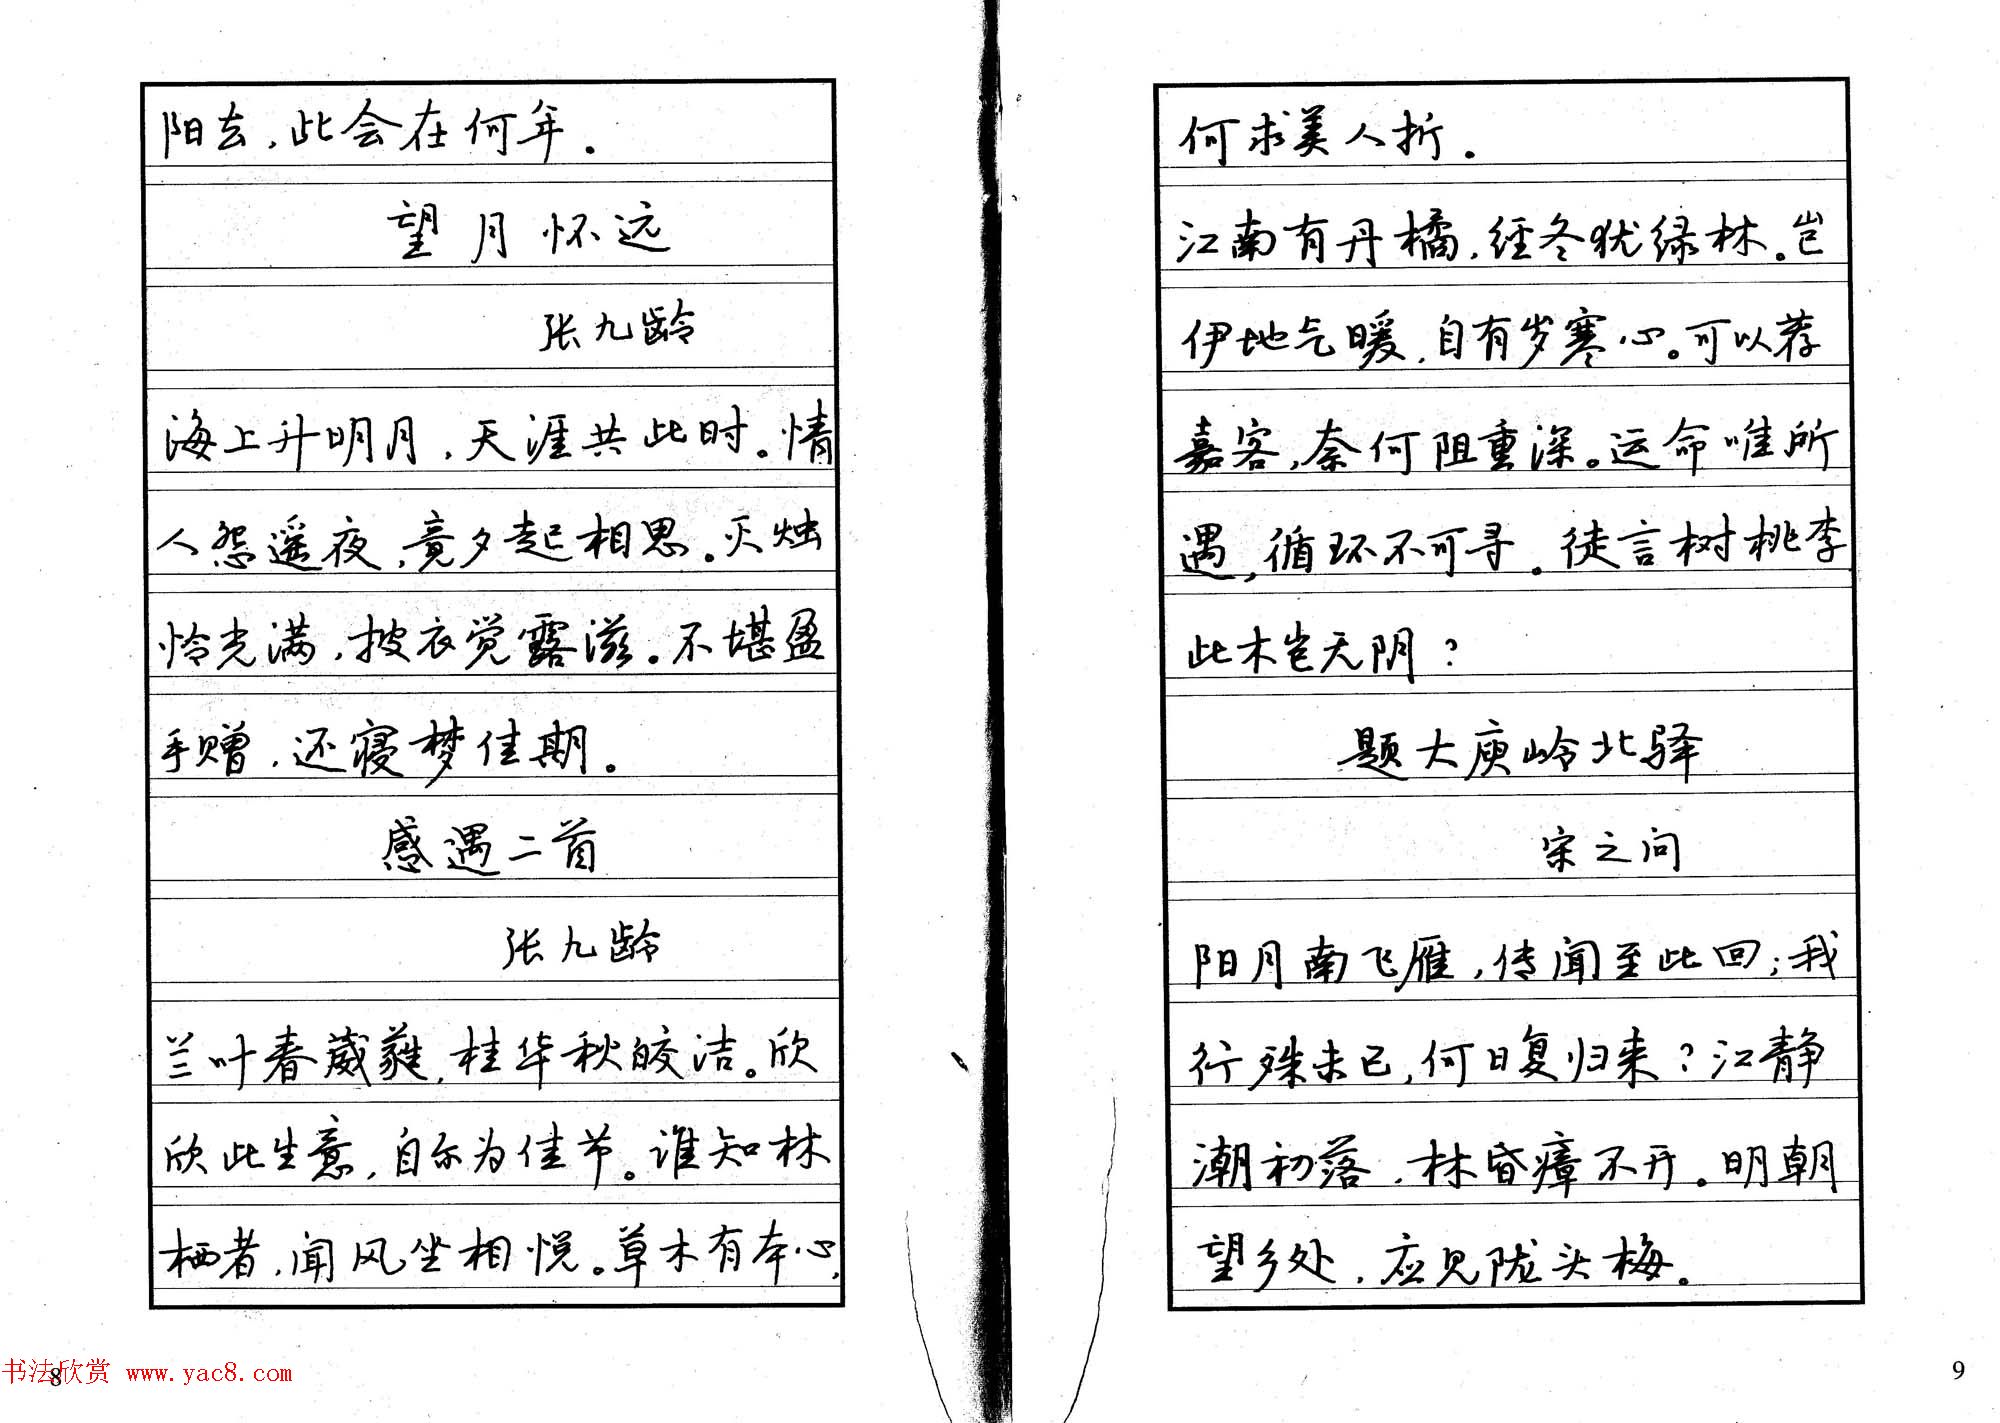 阳去，此会在何年。
望月怀远
张九龄
海上升明月，天涯共此时。情
人怨遥夜，竟夕起相思。灭烛
怜光满，披衣觉露滋。不堪盈
手赠，还寝梦佳期。
感遇二首
张九龄
兰叶春葳蕤，桂华秋皎洁。欣
欣此生意，自尔为佳节。谁知林
栖者，闻风坐相悦。草木有本心，
书法欣赏 www.yac8.com
8
何求美人折。
江南有丹橘，经冬犹绿林。岂
伊地气暖，自有岁寒心。可以荐
嘉客，奈何阻重深。运命唯所
遇，循环不可寻。徒言树桃李
此木岂无阴？
题大庾岭北驿
宋之问
阳月南飞雁，传闻至此回；我
行殊未已，何日复归来？江静
潮初落，林昏瘴不开。明朝
望乡处，应见陇头梅。
9